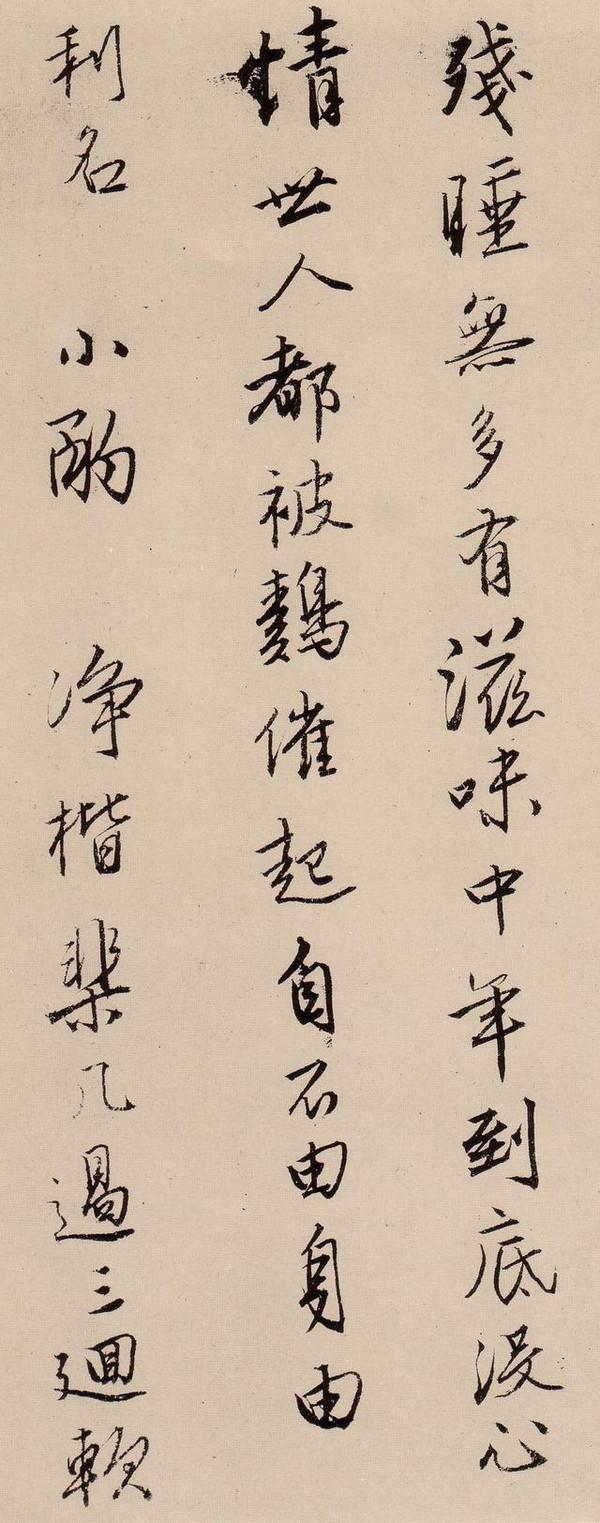 殘睡無多有滋味中年到底沒心
情世人都被鷄催起自不由身由
利名 小酌 淨揩棐几過三迴軟